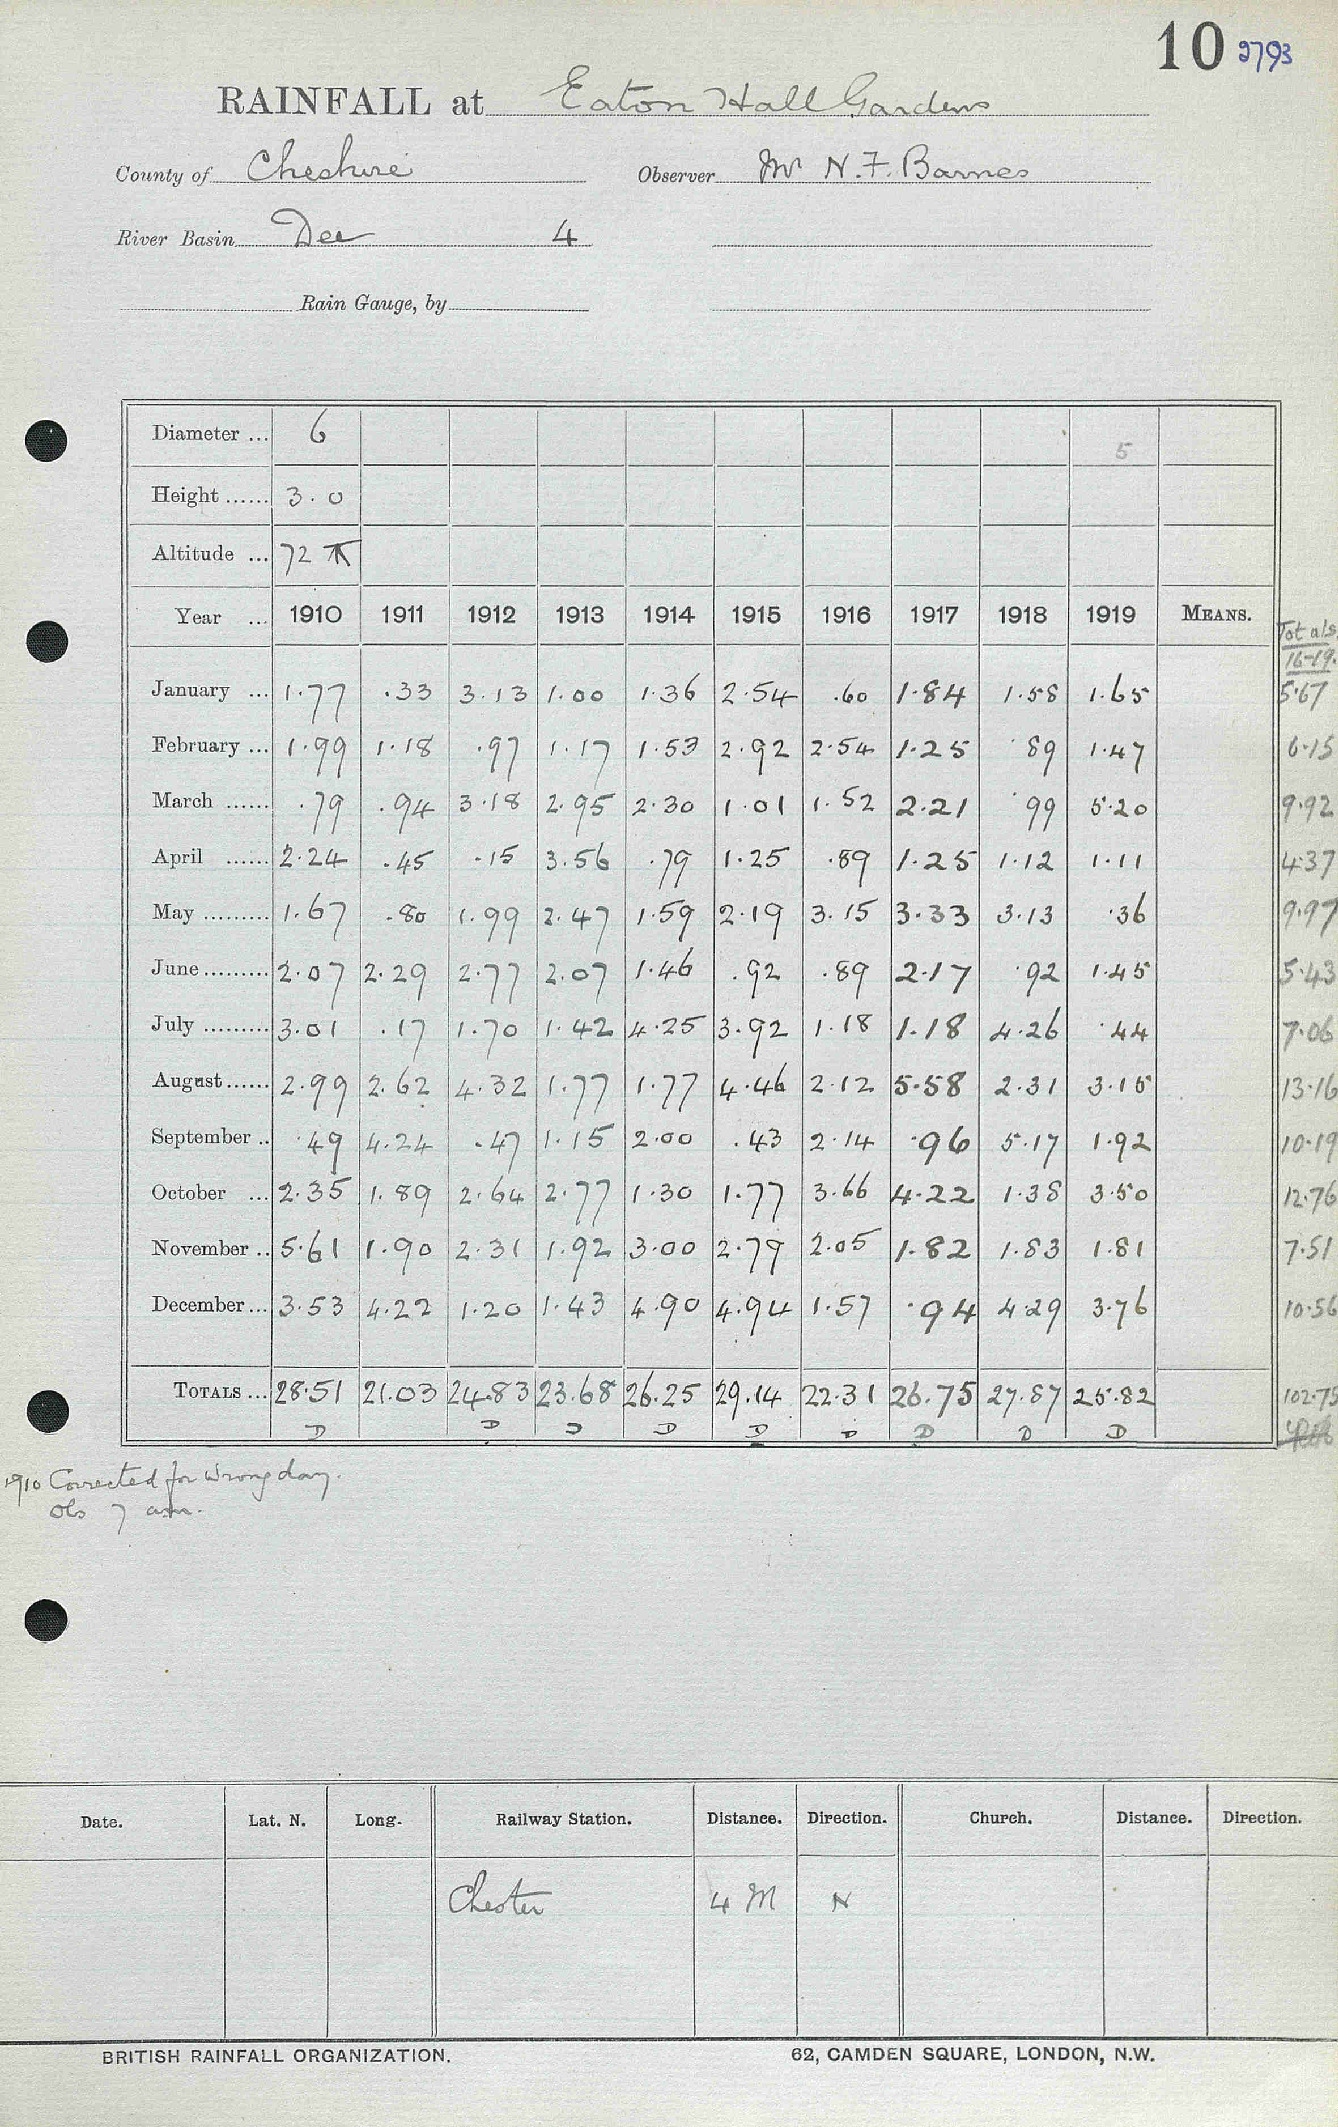 10 2793
RAINFALL at Eaton Hall Gardens
County of Cheshire Observer Mr N. F. Barnes
River Basin Dee 4
Rain Gauge, by
Diameter ... 6 5
Height ...... 3.0
Altitude ... 72
Year ... 1910 1911 1912 1913 1914 1915 1916 1917 1918 1919 MEANS. Totals
16-19.
January ... 1.77 .33 3.13 1.00 1.36 2.54 .60 1.84 1.58 1.65 5.67
February ... 1.99 1.18 .97 1.17 1.53 2.92 2.54 1.25 .89 1.47 6.15
March ...... .79 .94 3.18 2.95 2.30 1.01 1.52 2.21 .99 5.20 9.92
April ...... 2.24 .45 .15 3.56 .79 1.25 .89 1.25 1.12 1.11 4.37
May ......... 1.67 .80 1.99 2.47 1.59 2.19 3.15 3.33 3.13 .36 9.97
June ......... 2.07 2.29 2.77 2.07 1.46 .92 .89 2.17 .92 1.45 5.43
July ......... 3.01 .17 1.70 1.42 4.25 3.92 1.18 1.18 4.26 .44 7.06
August ...... 2.99 2.62 4.32 1.77 1.77 4.46 2.12 5.58 2.31 3.15 13.16
September .. .49 4.24 .47 1.15 2.00 .43 2.14 .96 5.17 1.92 10.19
October ... 2.35 1.89 2.64 2.77 1.30 1.77 3.66 4.22 1.38 3.50 12.76
November .. 5.61 1.90 2.31 1.92 3.00 2.79 2.05 1.82 1.83 1.81 7.51
December ... 3.53 4.22 1.20 1.43 4.90 4.94 1.57 .94 4.29 3.76 10.56
TOTALS ... 28.51 21.03 24.83 23.68 26.25 29.14 22.31 26.75 27.87 25.82 102.75
D D D D D D D D D
1910 Corrected for wrong day.
Obs 7 am.
Date. Lat. N. Long. Railway Station. Distance. Direction. Church. Distance. Direction.
Chester 4 M N
BRITISH RAINFALL ORGANIZATION. 62, CAMDEN SQUARE, LONDON, N.W.